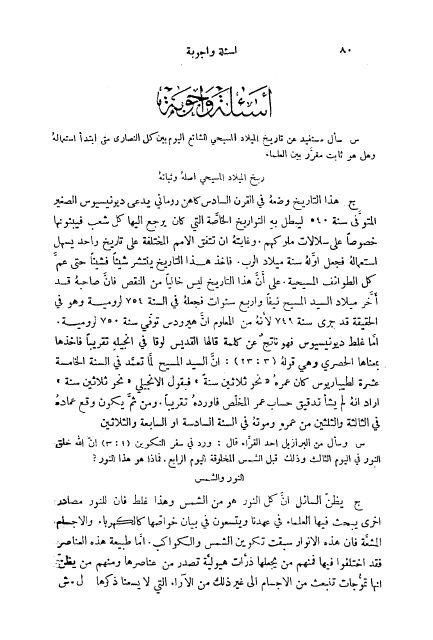 ٨٠ اسئلة واجوبة
أسئلة وأجوبة
س سأل مستفيد عن تاريخ الميلاد المسيحي الشائع اليوم بين كل النصارى متى ابتدأ استعماله
وهل هو ثابت مقرَّر بين العلماء
ريخ الميلاد المسيحي اصله وثباته
ج هذا التاريخ وضعهُ في القرن السادس كاهن روماني يدعى ديونيسيوس الصغير
المتوفى سنة ٥٤٠ ليبطل به التواريخ الخاصَّة التي كان يرجع اليها كل شعب فيبنونها
خصوصاً على سلالات ملوكهم. وغايتهُ ان تتفق الامم المختلفة على تاريخ واحد يسهل
استعمالهُ فجعل اولهُ سنة ميلاد الرب. فاخذ هذا التاريخ ينتشر شيئاً فشيئاً حتى عمَّ
كل الطوائف المسيحية. على أنَّ هذا التاريخ ليس خالياً من النقص فانَّ صاحبهُ قد
أَخَّر ميلاد السيد المسيح نيفاً واربع سنوات فجعلهُ في السنة ٧٥٤ لرومية وهو في
الحقيقة قد جرى سنة ٧٤٩ لأَنهُ من المعلوم انَّ هيرودس توفّي سنة ٧٥٠ لرومية.
امَّا غلط ديونيسيوس فهو ناتج عن كلمة قالها القديس لوقا في انجيلهِ تقريباً فاخذها
بمعناها الحصري وهي قولهُ (٢٣:٣) انَّ السيد المسيح لمَّا تعمَّد في السنة الخامسة
عشرة لطيباريوس كان عمرهُ «نحو ثلاثين سنة» فبقول الانجيلي «نحو ثلاثين سنة»
اراد انهُ لم يشأ تدقيق حساب عمر المخلّص فاوردهُ تقريباً. ومن ثمَّ يكون وقع عمادهُ
في الثالثة والثلثين من عمرهِ وموتهُ في السنة السادسة او السابعة والثلاثين
س وسأل من البرازيل احد القرَّاء قال: ورد في سفر التكوين (٣:١) انَّ الله خلق
النور في اليوم الثالث وذلك قبل الشمس المخلوقة اليوم الرابع. فماذا هو هذا النور؟
النور والشمس
ج يظنّ السائل انَّ كل النور هو من الشمس وهذا غلط فان للنور مصادر
اخرى يبحث فيها العلماء في عهدنا ويتسعون في بيان خواصها كالكهرباء والاجسام
المشعَّة فان هذه الانوار سبقت تكوين الشمس والكواكب. امَّا طبيعة هذه العناصر
فقد اختلفوا فيها فمنهم من يجعلها ذرات هيوليَّة تصدر من عناصرها ومنهم من يظنّ
انها تموُّجات تنبعث من الاجسام الى غير ذلك من الآراء التي لا يسعنا ذكرها ل.ش